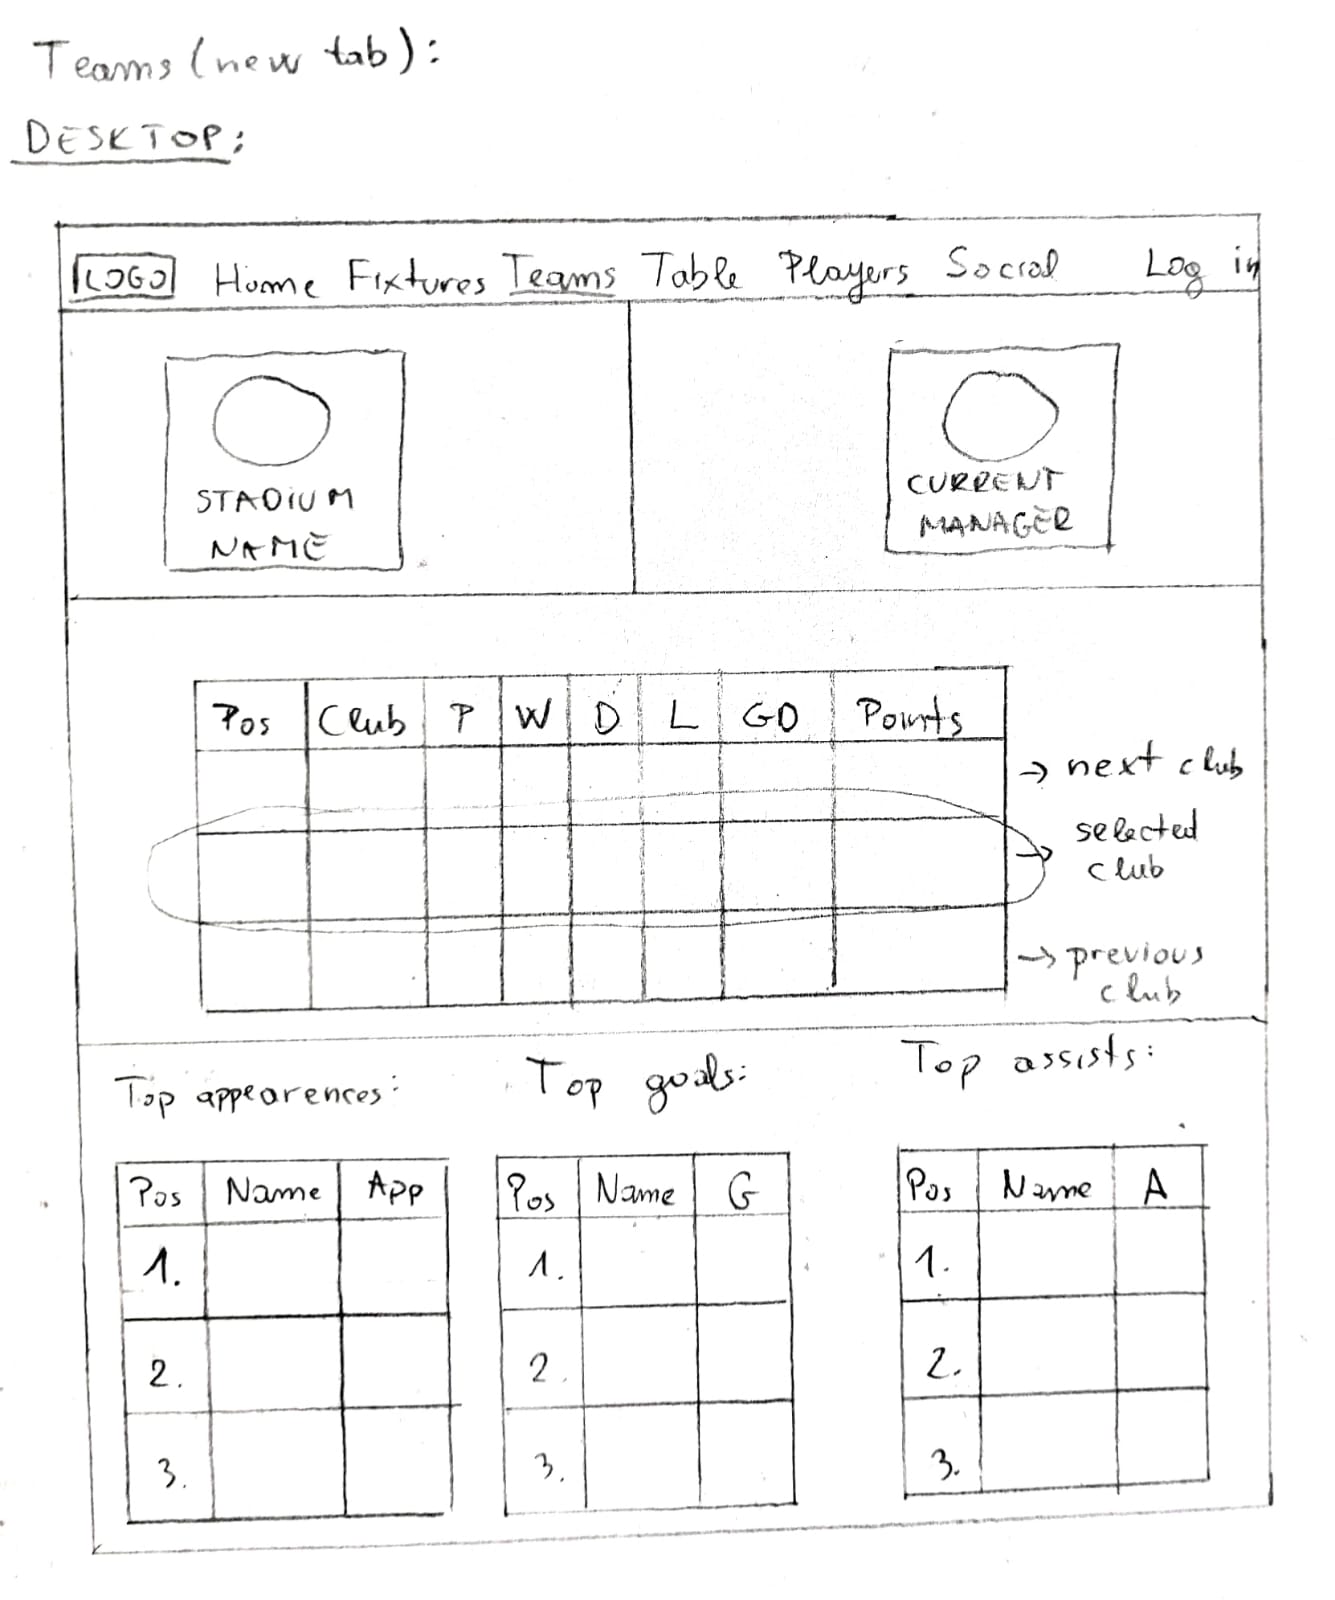 Teams (new tab):
DESKTOP:
LOGO Home Fixtures Teams Table Players Social Log in
STADIUM
NAME
CURRENT
MANAGER
Pos Club P W D L GD Points
→ next club
→ selected
club
→ previous
club
Top appearences: Top goals: Top assists:
Pos Name App Pos Name G Pos Name A
1. 1. 1.
2. 2. 2.
3. 3. 3.